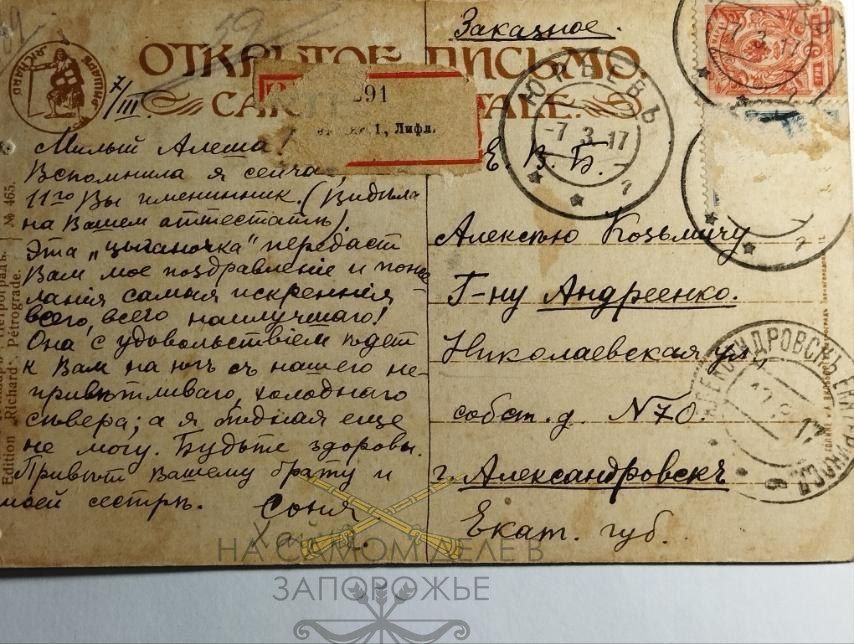 59
Заказное.
ОТКРЫТОЕ ПИСЬМО.
CARTE POSTALE.
RICHARD
7/III
891
1, Лифл.
ЮРЬЕВЪ
-7 3 17
7 3 17
Милый Алеша!
Вспомнила я сейчас,
11го Вы именинник. (Видѣла
на Вашем аттестатѣ).
Эта „цыганочка" передаст
Вам мое поздравленіе и поже-
ланія самыя искреннія
всего, всего наилучшаго!
Она с удовольствіем пѣдет
к Вам на югъ съ нашего не-
привѣтливаго, холоднаго
сѣвера; а я бѣдная еще
не могу. Будьте здоровы.
Привѣт Вашему брату и
моей сестрѣ.
Соня
Е. В. Б.
Алексѣю Козьмичу
Г-ну Андреенко.
Николаевская ул.
собст. д. N 70.
г. Александровскъ
Екат. губ.
Петроградъ.
Edition „Richard", Pétrograde.
№ 465.
НА САМОМ ДЕЛЕ В
ЗАПОРОЖЬЕ